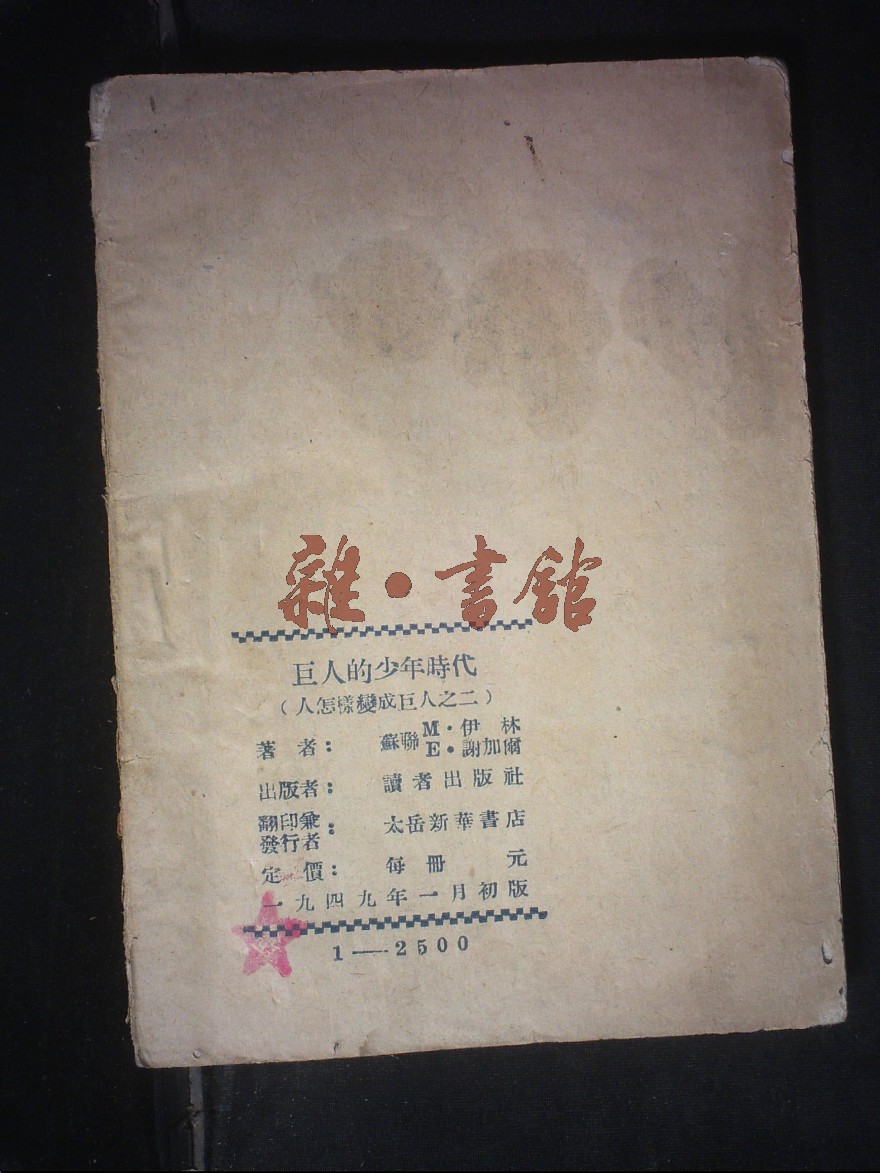 雜·書館
巨人的少年時代
（人怎樣變成巨人之二）
著者： 蘇聯 M·伊林
E·謝加爾
出版者： 讀者出版社
翻印兼
發行者： 太岳新華書店
定價： 每冊 元
一九四九年一月初版
1——2500